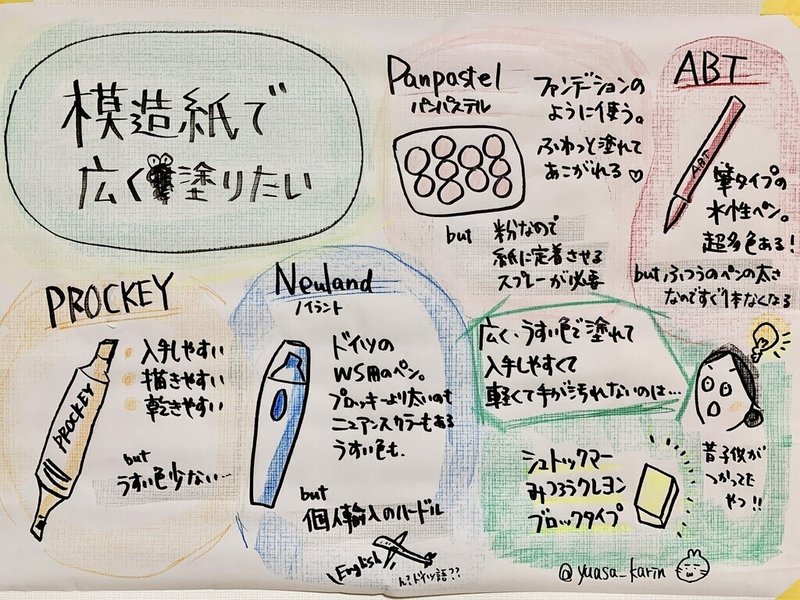 模造紙で
広く塗りたい
Panpastel
パンパステル
ファンデーションの
ように使う。
ふわっと塗れて
あこがれる♡
but
粉なので
紙に定着させる
スプレーが必要
ABT
ABT
筆タイプの
水性ペン。
超多色ある!
but ふつうのペンの太さ
なのですぐ1本なくなる
PROCKEY
PROCKEY
入手しやすい
描きやすい
乾きやすい
but
うすい色少ない…
Neuland
ノイラント
ドイツの
WS用のペン。
プロッキーより太いのも
ニュアンスカラーもある
うすい色も.
but
個人輸入のハードル
English
ん?ドイツ語??
広く、うすい色で塗れて
入手しやすくて
軽くて手が汚れないのは…
シュトックマー
みつろうクレヨン
ブロックタイプ
昔子供が
つかってた
やつ!!
@yuasa_karin